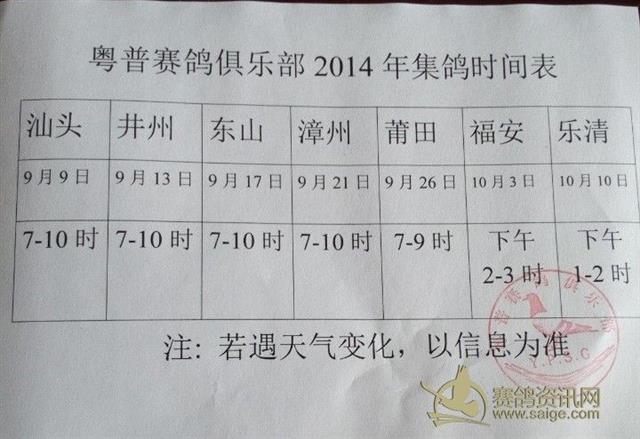 粤普赛鸽俱乐部 2014 年集鸽时间表
汕头 井州 东山 漳州 莆田 福安 乐清
9月9日 9月13日 9月17日 9月21日 9月26日 10月3日 10月10日
7-10 时 7-10 时 7-10 时 7-10 时 7-9 时 下午 下午
2-3 时 1-2 时
注: 若遇天气变化，以信息为准
普赛鸽俱乐部
Y.P.S.G
赛鸽资讯网
www.saige.com